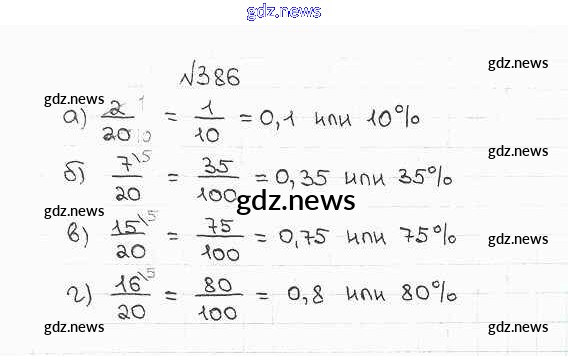 gdz.news
№386
gdz.news
gdz.news
а) 2/20 1 10 = 1/10 = 0,1 или 10%
gdz.news
б) 7\5/20 = 35/100 = 0,35 или 35%
gdz.news
gdz.news
в) 15\5/20 = 75/100 = 0,75 или 75%
gdz.news
г) 16\5/20 = 80/100 = 0,8 или 80%
gdz.news
gdz.news